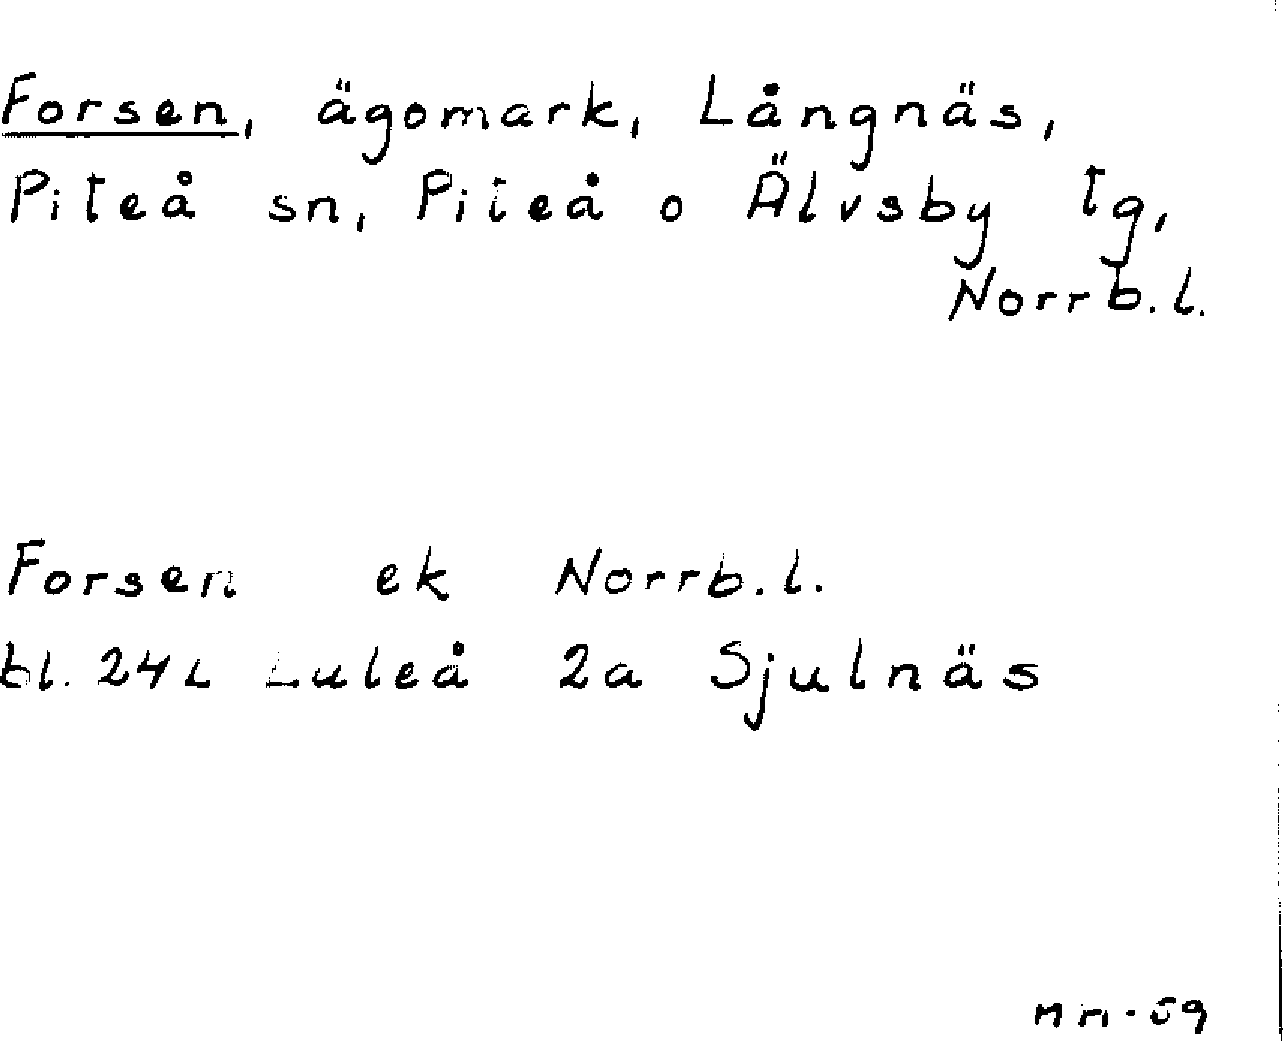 Forsen, ägomark, Långnäs,
Piteå sn, Piteå o Älvsby tg,
Norrb.l.
Forsen ek Norrb.l.
bl. 24L Luleå 2a Sjulnäs